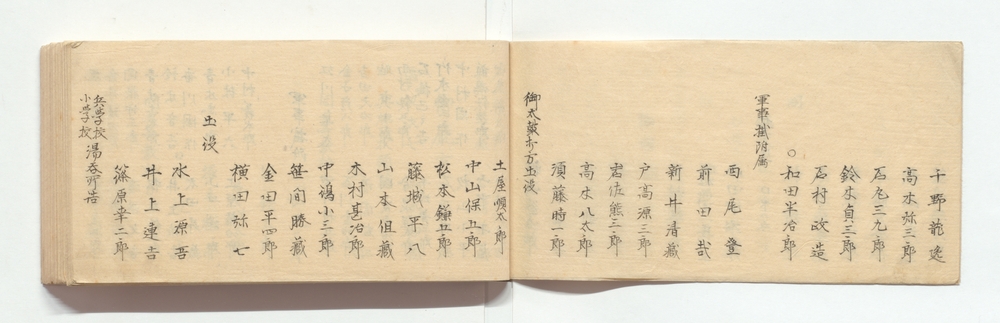 千野龍逸
高木弥三郎
石丸三九郎
鈴木貞三郎
石村改造
〇和田半治郎
軍事掛附属
西尾登
前田五哉
新井清蔵
戸高源三郎
君佐熊三郎
高木八太郎
須藤時一郎
御太鼓打方出役
土屋順太郎
中山保五郎
松本鎌五郎
藤城平八
山本伹蔵
木村甚治郎
中澙小三郎
笹間勝蔵
金田平四郎
横田弥七
出役
水上源吾
井上蓮吉
篠原幸二郎
兵学校
小学校
湯呑所